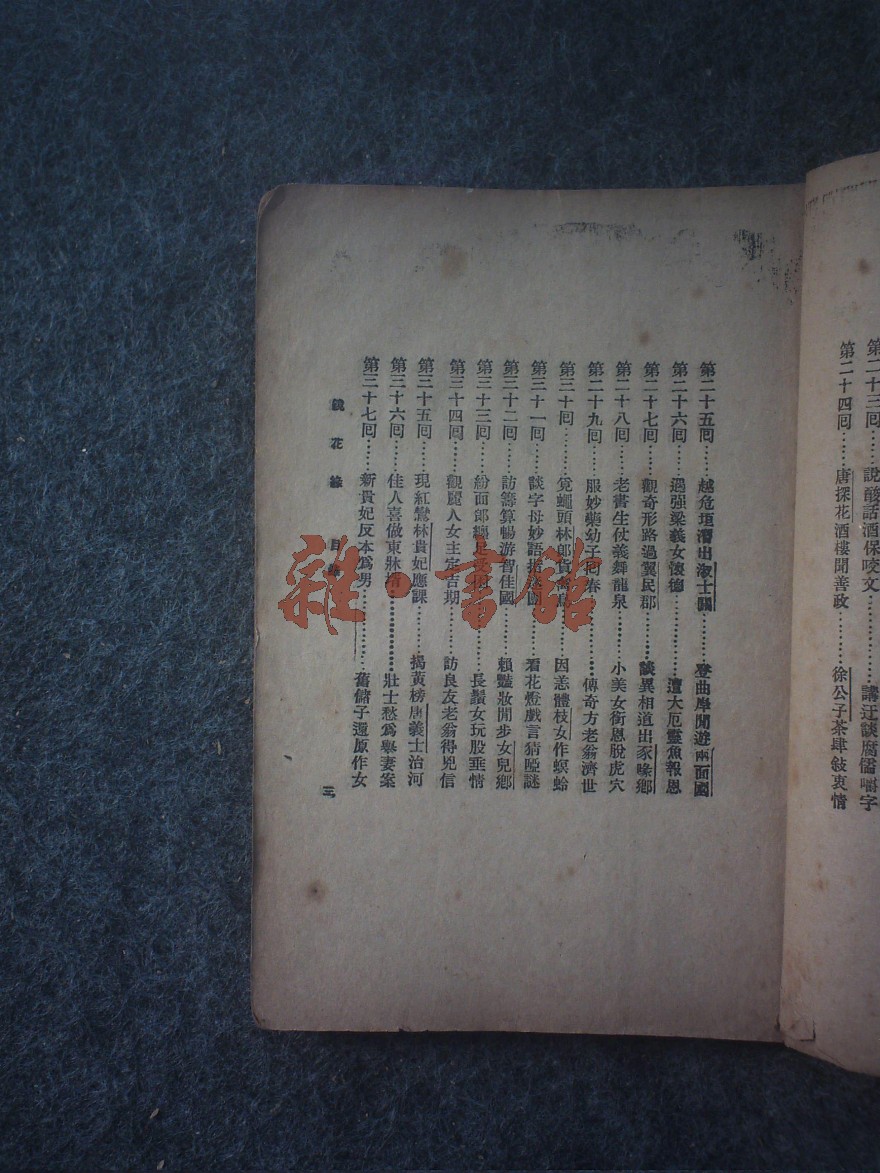 第二十三回……說酸話酒保咬文…………講迂談腐儒嚼字
第二十四回……唐探花酒樓聞善政…………徐公子茶肆敍衷情
第二十五回……越危垣潛出淑士關…………登曲岸閒遊兩面國
第二十六回……遇强梁義女懷德…………遭大厄靈魚報恩
第二十七回……觀奇形路過翼民郡…………談異相道出豕喙鄉
第二十八回……老書生仗義舞龍泉…………小美女銜恩脫虎穴
第二十九回……服妙藥幼子回春…………傳奇方老翁濟世
第三十回……覓蠅頭林郎貨禽鳥…………因恙體枝女作螟蛉
第三十一回……談字母妙語指迷團…………看花燈戲言猜啞謎
第三十二回……訪籌算暢游智佳國…………賴豔妝閒步女兒鄉
第三十三回……紛面郎纏足受困…………長鬚女玩股垂情
第三十四回……觀麗人女主定吉期…………訪良友老翁得兇信
第三十五回……現紅鸞林貴妃應課…………揭黃榜唐義士治河
第三十六回……佳人喜做東牀婿…………壯士愁爲舉妻案
第三十七回……新貴妃反本爲男…………舊儲子還原作女
鏡花緣 目錄 三
雜·書館